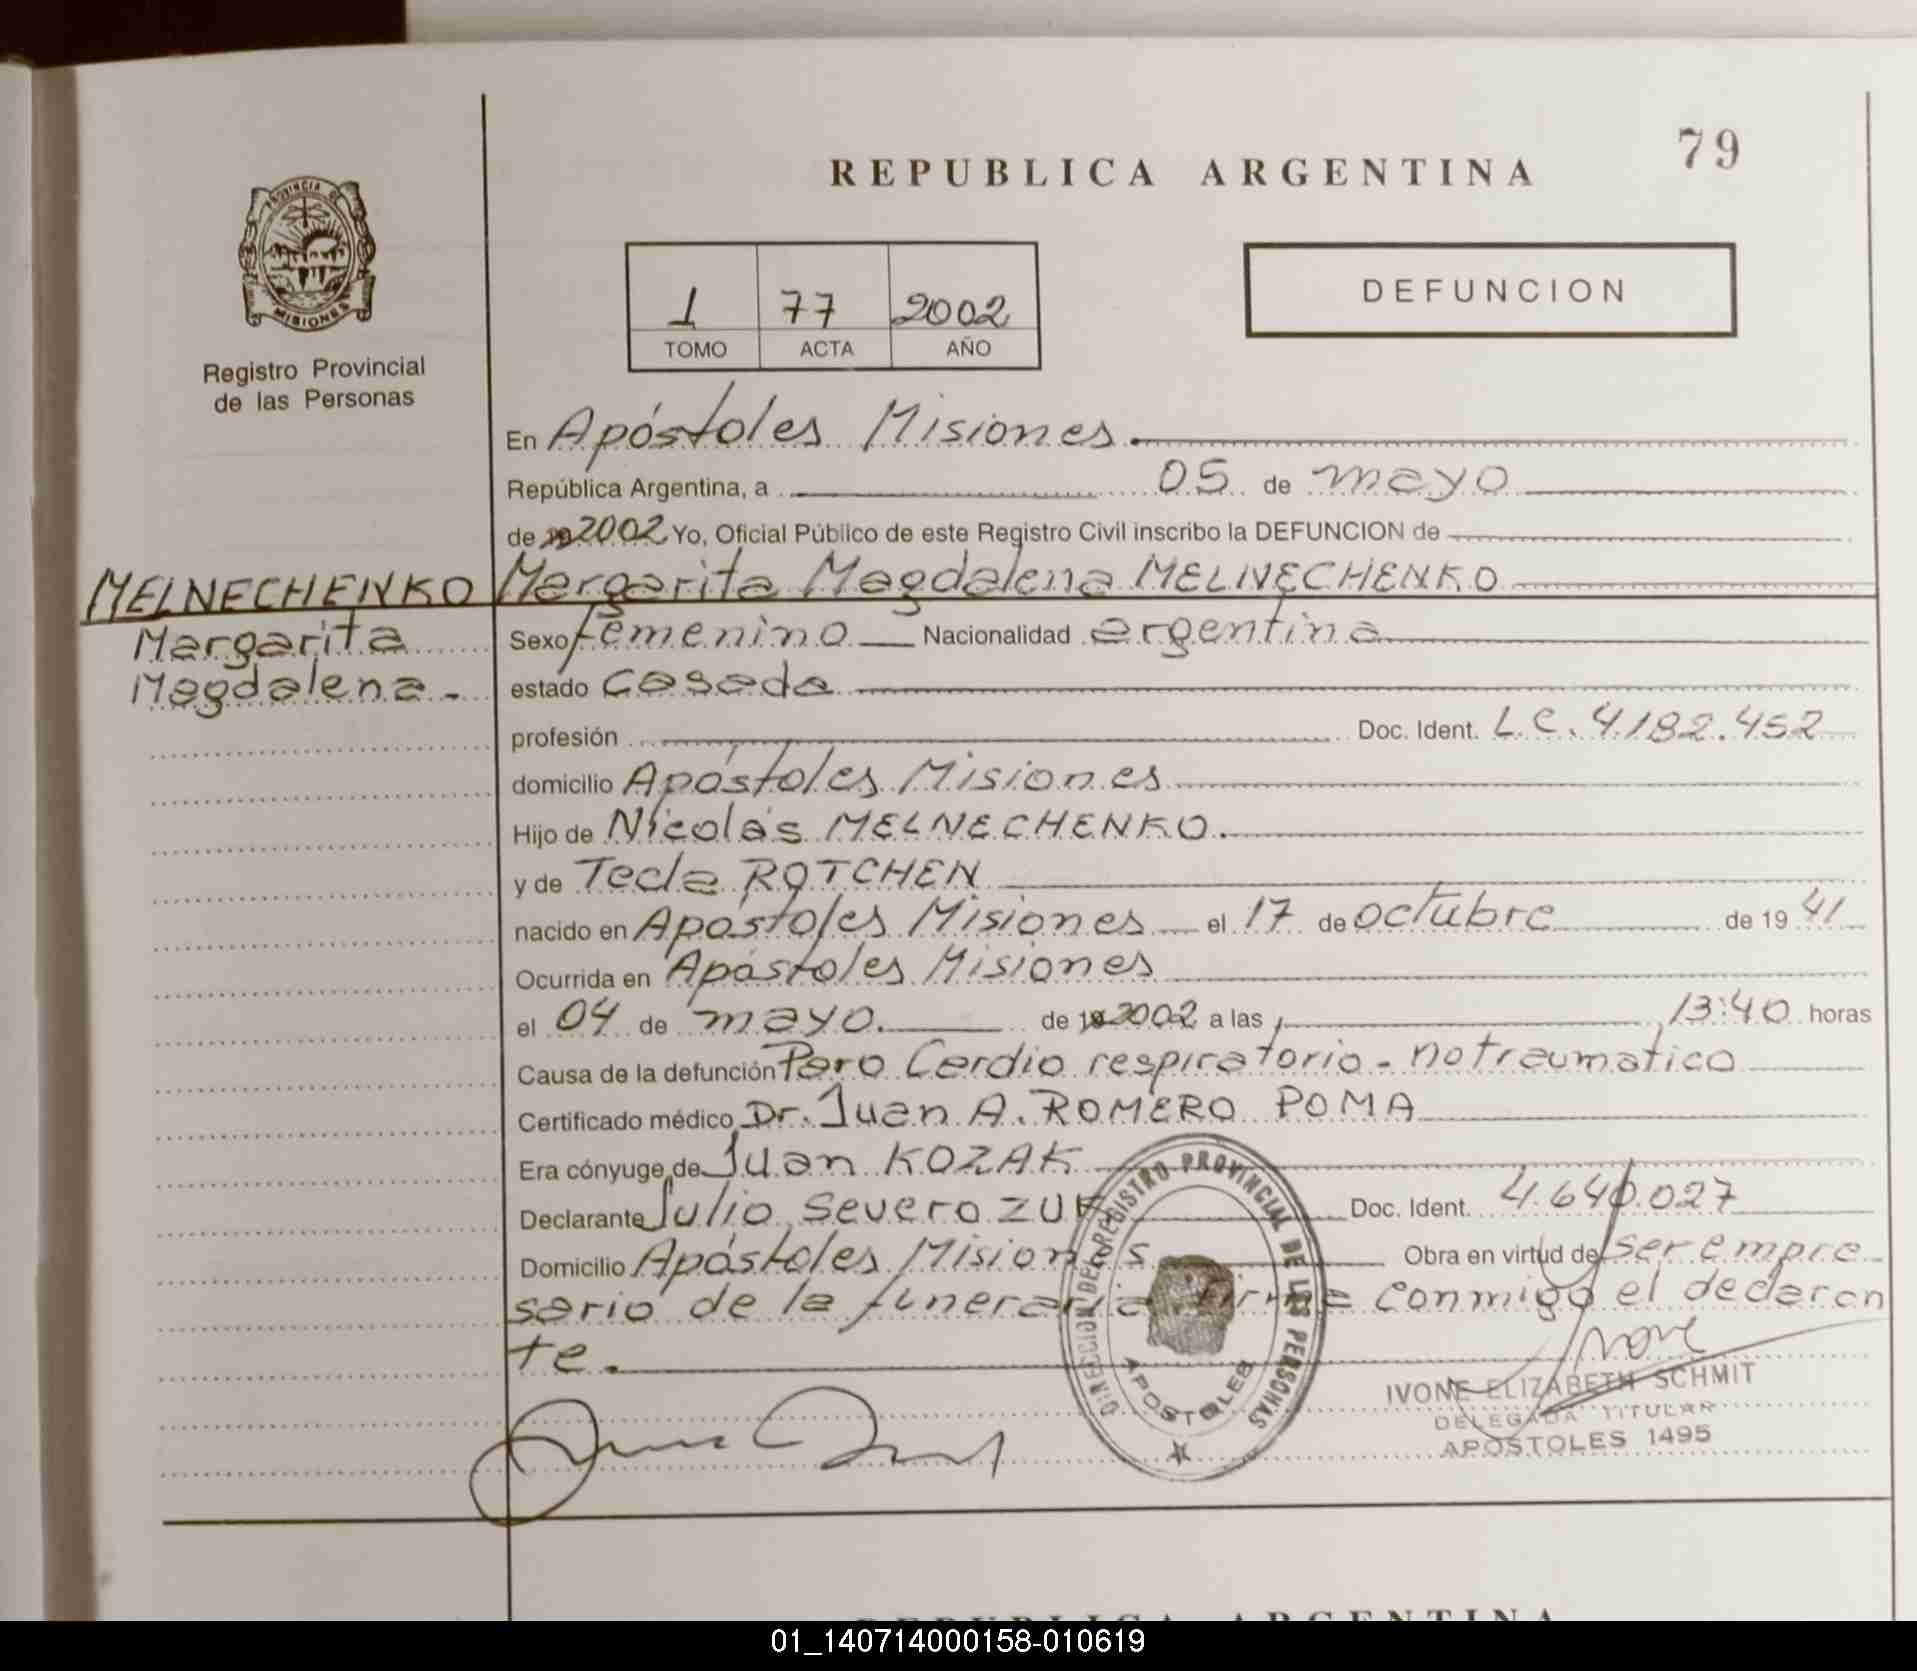 79
REPUBLICA ARGENTINA
PROVINCIA DE
MISIONES
Registro Provincial
de las Personas
DEFUNCION
1 77 2002
TOMO ACTA AÑO
En Apóstoles Misiones
República Argentina, a 05 de mayo
de 2002 Yo, Oficial Público de este Registro Civil inscribo la DEFUNCION de
MELNECHENKO
Margarita
Magdalena
Margarita Magdalena MELNECHENKO
Sexo femenino Nacionalidad argentina
estado casada
profesión Doc. Ident. L.C. 4.182.452
domicilio Apóstoles Misiones
Hijo de Nicolás MELNECHENKO.
y de Tecla ROTCHEN
nacido en Apóstoles Misiones el 17 de octubre de 19 41
Ocurrida en Apóstoles Misiones
el 04 de mayo. de 19 2002 a las 13:40 horas
Causa de la defunción Paro Cardio respiratorio - no traumatico
Certificado médico Dr. Juan A. ROMERO POMA
Era cónyuge de Juan KOZAK
Declarante Julio Severo ZUK Doc. Ident. 4.640.027
Domicilio Apóstoles Misiones Obra en virtud de ser empre-
sario de la funeraria firma conmigo el declaran
te.
DIRECCION DEL REGISTRO PROVINCIAL DE LAS PERSONAS
APOSTOLES
IVONE ELIZABETH SCHMIT
DELEGADA TITULAR
APOSTOLES 1495
REPUBLICA ARGENTINA
01_140714000158-010619